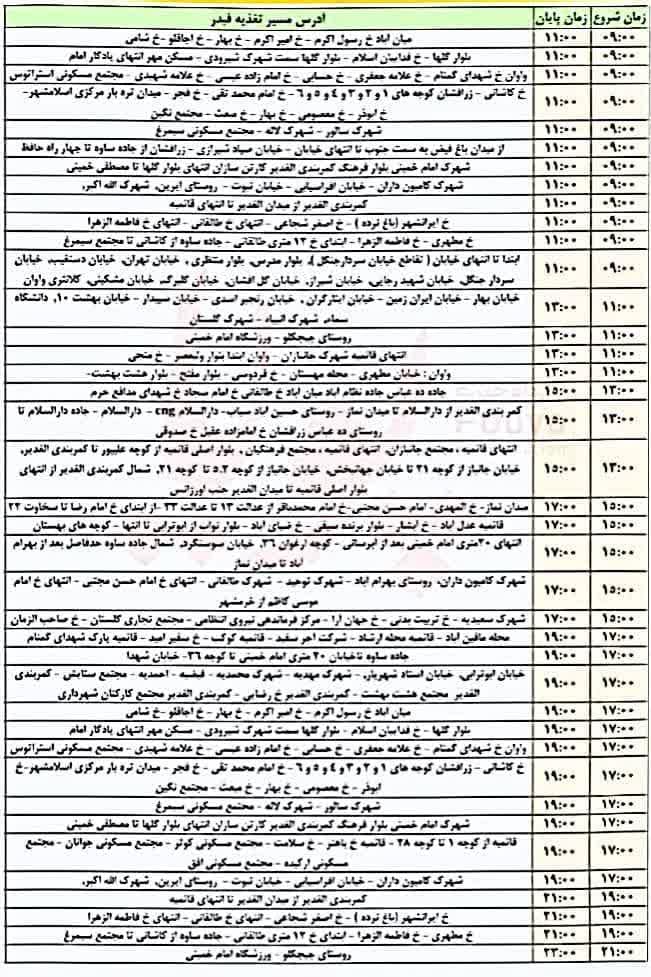 زمان شروع زمان پایان آدرس مسیر تغذیه فیدر
۰۹:۰۰ ۱۱:۰۰ میان آباد خ رسول اکرم - خ امیر اکرم - خ بهار - خ اجاقلو -خ شامی
۰۹:۰۰ ۱۱:۰۰ بلوار گلها - خ فداییان اسلام - بلوار گلها سمت شهرک شیرودی - مسکن مهر انتهای یادگار امام
۰۹:۰۰ ۱۱:۰۰ واوان خ شهدای گمنام - خ علامه جعفری - خ حسابی - خ امام زاده عیسی - خ علامه شهیدی - مجتمع مسکونی استراتوس
۰۹:۰۰ ۱۱:۰۰ خ کاشانی - زرافشان کوچه های ۱ و ۲ و ۳ و ۴ و ۵ و ۶ - خ امام محمد تقی - خ فجر - میدان تره بار مرکزی اسلامشهر-
خ ابوذر - خ معصومی - خ بهار - خ مبعث - مجتمع نگین
۰۹:۰۰ ۱۱:۰۰ شهرک سالور - شهرک لاله - مجتمع مسکونی سیمرغ
۰۹:۰۰ ۱۱:۰۰ از میدان باغ فیض به سمت جنوب تا انتهای خیابان - خیابان صیاد شیرازی - زرافشان از جاده ساوه تا چهار راه حافظ
۰۹:۰۰ ۱۱:۰۰ شهرک امام خمینی بلوار فرهنگ کمربندی الغدیر کارتن سازان انتهای بلوار گلها تا مصطفی خمینی
۰۹:۰۰ ۱۱:۰۰ شهرک کامیون داران - خیابان افراسیابی - خیابان نبوت - روستای ایرین، شهرک الله اکبر،
۰۹:۰۰ ۱۱:۰۰ کمربندی الغدیر از میدان الغدیر تا انتهای قائمیه
۰۹:۰۰ ۱۱:۰۰ خ ایرانشهر (باغ نرده ) - خ اصغر شجاعی - انتهای خ طالقانی - انتهای خ فاطمه الزهرا
۰۹:۰۰ ۱۱:۰۰ خ مطهری - خ فاطمه الزهرا - ابتدای خ ۱۲ متری طالقانی - جاده ساوه از کاشانی تا مجتمع سیمرغ
۰۹:۰۰ ۱۱:۰۰ ابتدا تا انتهای خیابان ( تقاطع خیابان سردارجنگل )، بلوار مدرس، بلوار منتظری ، خیابان تهران، خیابان دستغیب، خیابان
سردار جنگل، خیابان شهید رجایی، خیابان شیراز، خیابان گل افشان، خیابان گلبرگ، خیابان مشکینی، کلانتری واوان
۱۱:۰۰ ۱۳:۰۰ خیابان بهار - خیابان ایران زمین - خیابان ایثارگران ، خیابان رنجبر اسدی - خیابان سپیدار - خیابان بهشت ۱۰، دانشگاه
سما، شهرک انبیاء - شهرک گلستان
۱۱:۰۰ ۱۳:۰۰ روستای چیچکلو - ورزشگاه امام خمینی
۱۱:۰۰ ۱۳:۰۰ انتهای قائمیه شهرک جانبازان - واوان ابتدا بلوار ولیعصر - خ منجی
۱۱:۰۰ ۱۳:۰۰ واوان : خیابان مطهری - محله مهستان - خ فردوسی - بلوار مفتح - بلوار هشت بهشت-
۱۳:۰۰ ۱۵:۰۰ جاده ده عباس جاده نظام آباد میان آباد خ طالقانی خ امام سجاد خ شهدای مدافع حرم
۱۳:۰۰ ۱۵:۰۰ کمر بندی الغدیر از دارالسلام تا میدان نماز - روستای حسین آباد سیاب- دارالسلام cng - دارالسلام - جاده دارالسلام تا
روستای ده عباس زرافشان خ امامزاده عقیل خ صدوقی
۱۳:۰۰ ۱۵:۰۰ انتهای قائمیه ، مجتمع جانبازان، انتهای قائمیه ، مجتمع فرهنگیان ، بلوار اصلی قائمیه از کوچه علیپور تا کمربندی الغدیر،
خیابان جانباز از کوچه ۲۱ تا خیابان جهانبخش، خیابان جانباز از کوچه ۵.۲ تا کوچه ۲۱، شمال کمربندی الغدیر از انتهای
بلوار اصلی قائمیه تا میدان الغدیر جنب اورژانس
۱۵:۰۰ ۱۷:۰۰ میدان نماز- خ المهدی- امام حسن مجتبی-خ امام محمدباقر از عدالت ۱۳ تا عدالت ۳۳ -از ابتدای خ امام رضا تا سخاوت ۲۲
۱۵:۰۰ ۱۷:۰۰ قائمیه عدل آباد - خ آبشار - بلوار برنده سیفی - خ ضیای آباد - بلوار نواب از ابوترابی تا انتها - کوچه های بهستان
۱۵:۰۰ ۱۷:۰۰ انتهای ۲۰متری امام خمینی بعد از آبرسانی - کوچه ارغوان ۳۶، خیابان سوسنگرد، شمال جاده ساوه حدفاصل بعد از بهرام
آباد تا میدان نماز
۱۵:۰۰ ۱۷:۰۰ شهرک کامیون داران، روستای بهرام آباد - شهرک توحید - شهرک طالقانی - انتهای خ امام حسن مجتبی - انتهای خ امام
موسی کاظم از خرمشهر
۱۵:۰۰ ۱۷:۰۰ شهرک سعیدیه - خ تربیت بدنی - خ جهان آرا - مرکز فرماندهی نیروی انتظامی - مجتمع تجاری گلستان - خ صاحب الزمان
۱۷:۰۰ ۱۹:۰۰ محله مافین آباد - قائمیه محله ارشاد - شرکت آجر سفید - قائمیه کوکب - خ سفیر امید - قائمیه پارک شهدای گمنام
۱۷:۰۰ ۱۹:۰۰ جاده ساوه تاخیابان ۲۰ متری امام خمینی تا کوچه ۳۶- خیابان شهدا
۱۷:۰۰ ۱۹:۰۰ خیابان ابوترابی، خیابان استاد شهریار، - شهرک مهدیه - شهرک محمدیه - فیضیه - احمدیه - مجتمع ستایش - کمربندی
الغدیر مجتمع هشت بهشت - کمربندی الغدیر خ رضایی - کمربندی الغدیر مجتمع کارکنان شهرداری
۱۷:۰۰ ۱۹:۰۰ میان آباد خ رسول اکرم - خ امیر اکرم - خ بهار - خ اجاقلو -خ شامی
۱۷:۰۰ ۱۹:۰۰ بلوار گلها - خ فداییان اسلام - بلوار گلها سمت شهرک شیرودی - مسکن مهر انتهای یادگار امام
۱۷:۰۰ ۱۹:۰۰ واوان خ شهدای گمنام - خ علامه جعفری - خ حسابی - خ امام زاده عیسی - خ علامه شهیدی - مجتمع مسکونی استراتوس
۱۷:۰۰ ۱۹:۰۰ خ کاشانی - زرافشان کوچه های ۱ و ۲ و ۳ و ۴ و ۵ و ۶ - خ امام محمد تقی - خ فجر - میدان تره بار مرکزی اسلامشهر-خ
ابوذر - خ معصومی - خ بهار - خ مبعث - مجتمع نگین
۱۷:۰۰ ۱۹:۰۰ شهرک سالور - شهرک لاله - مجتمع مسکونی سیمرغ
۱۷:۰۰ ۱۹:۰۰ شهرک امام خمینی بلوار فرهنگ کمربندی الغدیر کارتن سازان انتهای بلوار گلها تا مصطفی خمینی
۱۷:۰۰ ۱۹:۰۰ قائمیه از کوچه ۱ تا کوچه ۲۸ - قائمیه خ باهنر - خ سلامت - مجتمع مسکونی کوثر - مجتمع مسکونی جوانان - مجتمع
مسکونی ارکیده - مجتمع مسکونی افق
۱۷:۰۰ ۱۹:۰۰ شهرک کامیون داران - خیابان افراسیابی - خیابان نبوت - روستای ایرین، شهرک الله اکبر،
۱۹:۰۰ ۲۱:۰۰ کمربندی الغدیر از میدان الغدیر تا انتهای قائمیه
۱۹:۰۰ ۲۱:۰۰ خ ایرانشهر (باغ نرده ) - خ اصغر شجاعی - انتهای خ طالقانی - انتهای خ فاطمه الزهرا
۱۹:۰۰ ۲۱:۰۰ خ مطهری - خ فاطمه الزهرا - ابتدای خ ۱۲ متری طالقانی - جاده ساوه از کاشانی تا مجتمع سیمرغ
۲۱:۰۰ ۲۳:۰۰ روستای چیچکلو - ورزشگاه امام خمینی